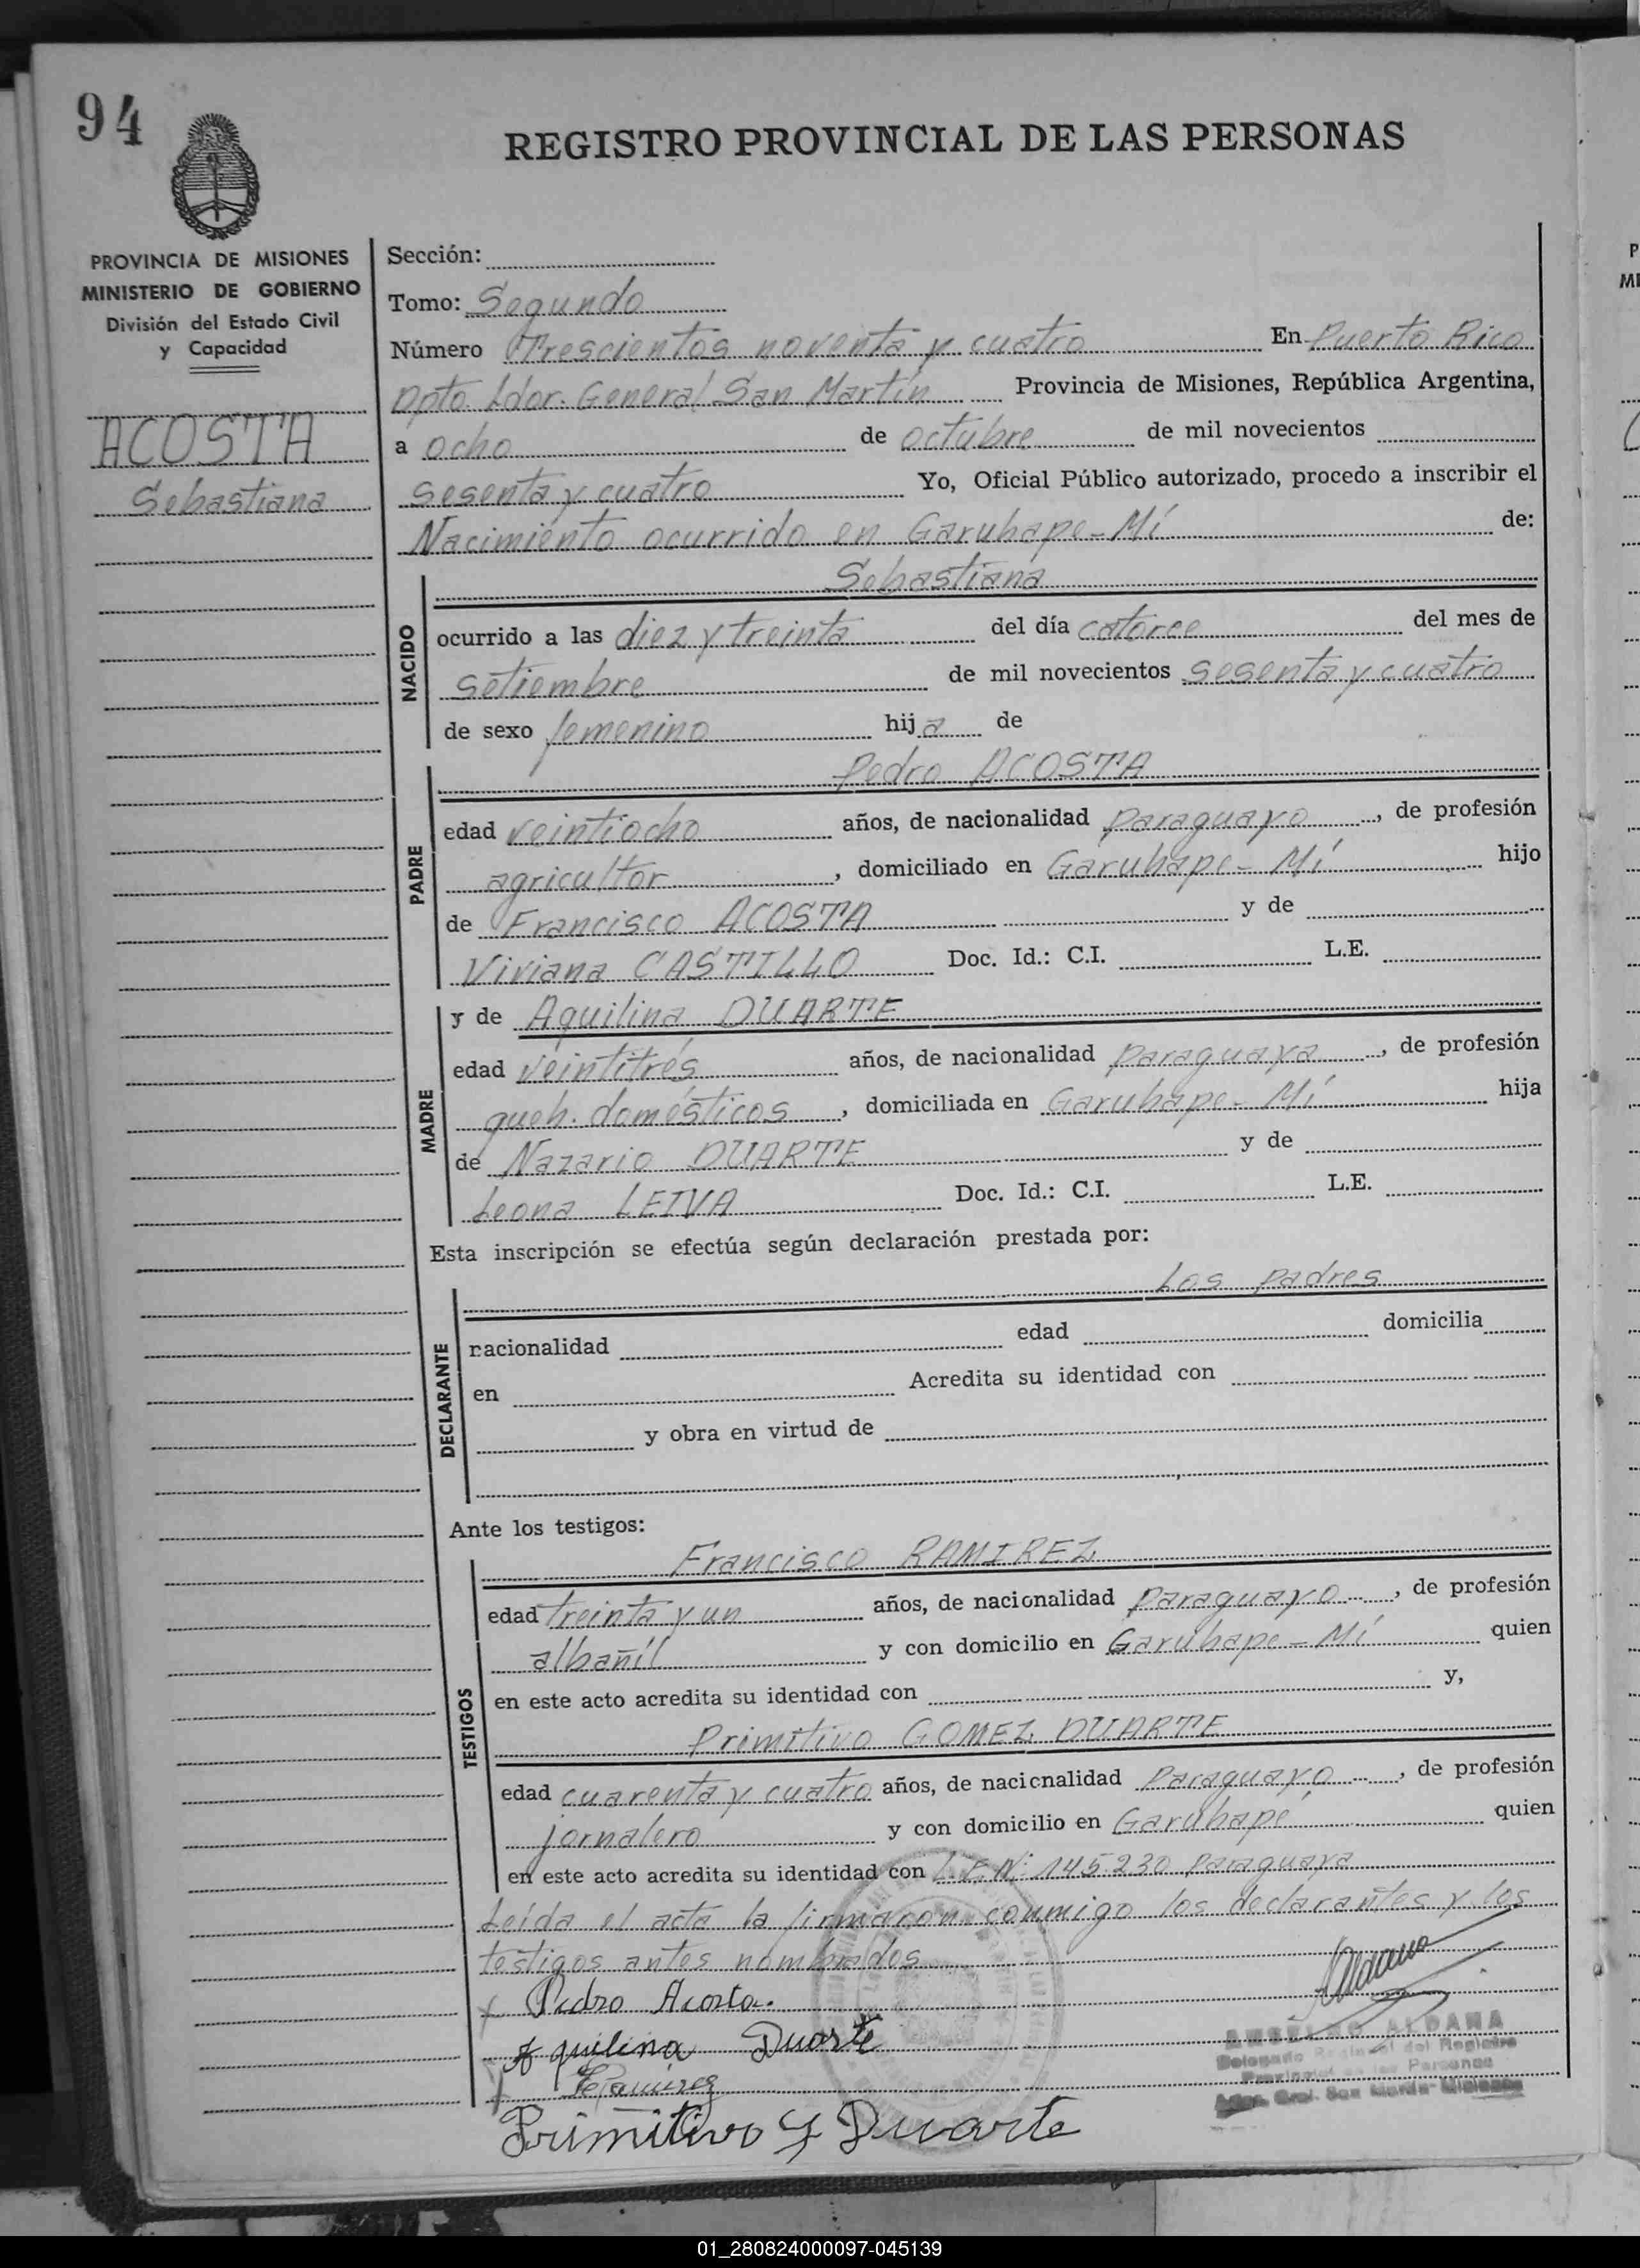 94
REGISTRO PROVINCIAL DE LAS PERSONAS
PROVINCIA DE MISIONES
MINISTERIO DE GOBIERNO
División del Estado Civil
y Capacidad
ACOSTA
Sebastiana
Sección:
Tomo: Segundo
Número Trescientos noventa y cuatro En Puerto Rico
Dpto. Ldor. General San Martín Provincia de Misiones, República Argentina,
a ocho de octubre de mil novecientos
sesenta y cuatro Yo, Oficial Público autorizado, procedo a inscribir el
Nacimiento ocurrido en Garuhape-Mí de:
NACIDO
Sebastiana
ocurrido a las diez y treinta del día catorce del mes de
setiembre de mil novecientos sesenta y cuatro
de sexo femenino hija de
PADRE
Pedro ACOSTA
edad veintiocho años, de nacionalidad paraguayo, de profesión
agricultor, domiciliado en Garuhape-Mí hijo
de Francisco ACOSTA y de
Viviana CASTILLO Doc. Id.: C.I. L.E.
MADRE
y de Aquilina DUARTE
edad veintitrés años, de nacionalidad paraguaya, de profesión
queh. domésticos, domiciliada en Garuhape-Mí hija
de Nazario DUARTE y de
Leona LEIVA Doc. Id.: C.I. L.E.
Esta inscripción se efectúa según declaración prestada por:
DECLARANTE
Los padres
nacionalidad edad domicilia
en Acredita su identidad con
y obra en virtud de
Ante los testigos:
TESTIGOS
Francisco RAMIREZ
edad treinta y un años, de nacionalidad paraguayo, de profesión
albañil y con domicilio en Garuhape-Mí quien
en este acto acredita su identidad con y,
Primitivo GOMEZ DUARTE
edad cuarenta y cuatro años, de nacionalidad paraguayo, de profesión
jornalero y con domicilio en Garuhapé quien
en este acto acredita su identidad con L.E. N: 145.230 paraguaya
Leída el acta la firmaron conmigo los declarantes y los
testigos antes nombrados
Pedro Acosta.
Aquilina Duarte
Ramirez
Primitivo G Duarte
Aldana
ANSELMO ALDANA
Delegado Regional del Registro
Provincial de las Personas
Gral. San Martín - Misiones
01_280824000097-045139